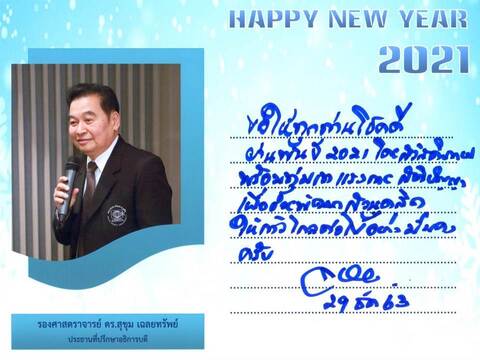 HAPPY NEW YEAR
2021
ขอให้ทุกท่านโชคดี
ผ่านพ้นปี 2021 โดยสวัสดิภาพ
พร้อมทุ่มเท แรงกาย สติปัญญา
เพื่อพัฒนาสวนดุสิต
ให้ก้าวไกลต่อไปอย่างมั่นคง
ครับ
29 ธค 63
รองศาสตราจารย์ ดร.สุขุม เฉลยทรัพย์
ประธานที่ปรึกษาอธิการบดี